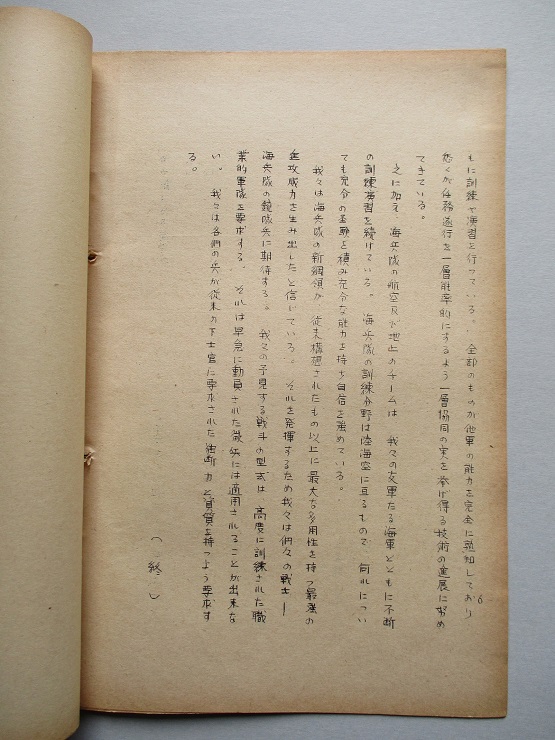 もに訓練や演習を行っている。全部のものが他軍の能力を完全に熟知しており
悉くが任務遂行を一層能率的にするよう一層協同の実を挙げ得る技術の進展に努め
てきている。
之に加え、海兵隊の航空及び地上のチームは、我々の友軍たる海軍とともに不断
の訓練演習を続けている。海兵隊の訓練分野は陸海空に亘るもので、何れについ
ても充分の基礎を積み充分な能力を持ち自信を強めている。
我々は海兵隊の新綱領が、従来構想されたもの以上に最大な多用性を持つ最強の
進攻威力を生み出したと信じている。それを発揮するため我々は個々の戦士―
海兵隊の銃隊兵に期待する。我々の予見する戦斗の型式は、高度に訓練された職
業的軍隊を要求する。それは早急に動員された徴兵には適用されることが出来な
い。我々は各個の兵が従来の下士官に要求された判断力と資質を持つよう要求す
る。
(終)
6